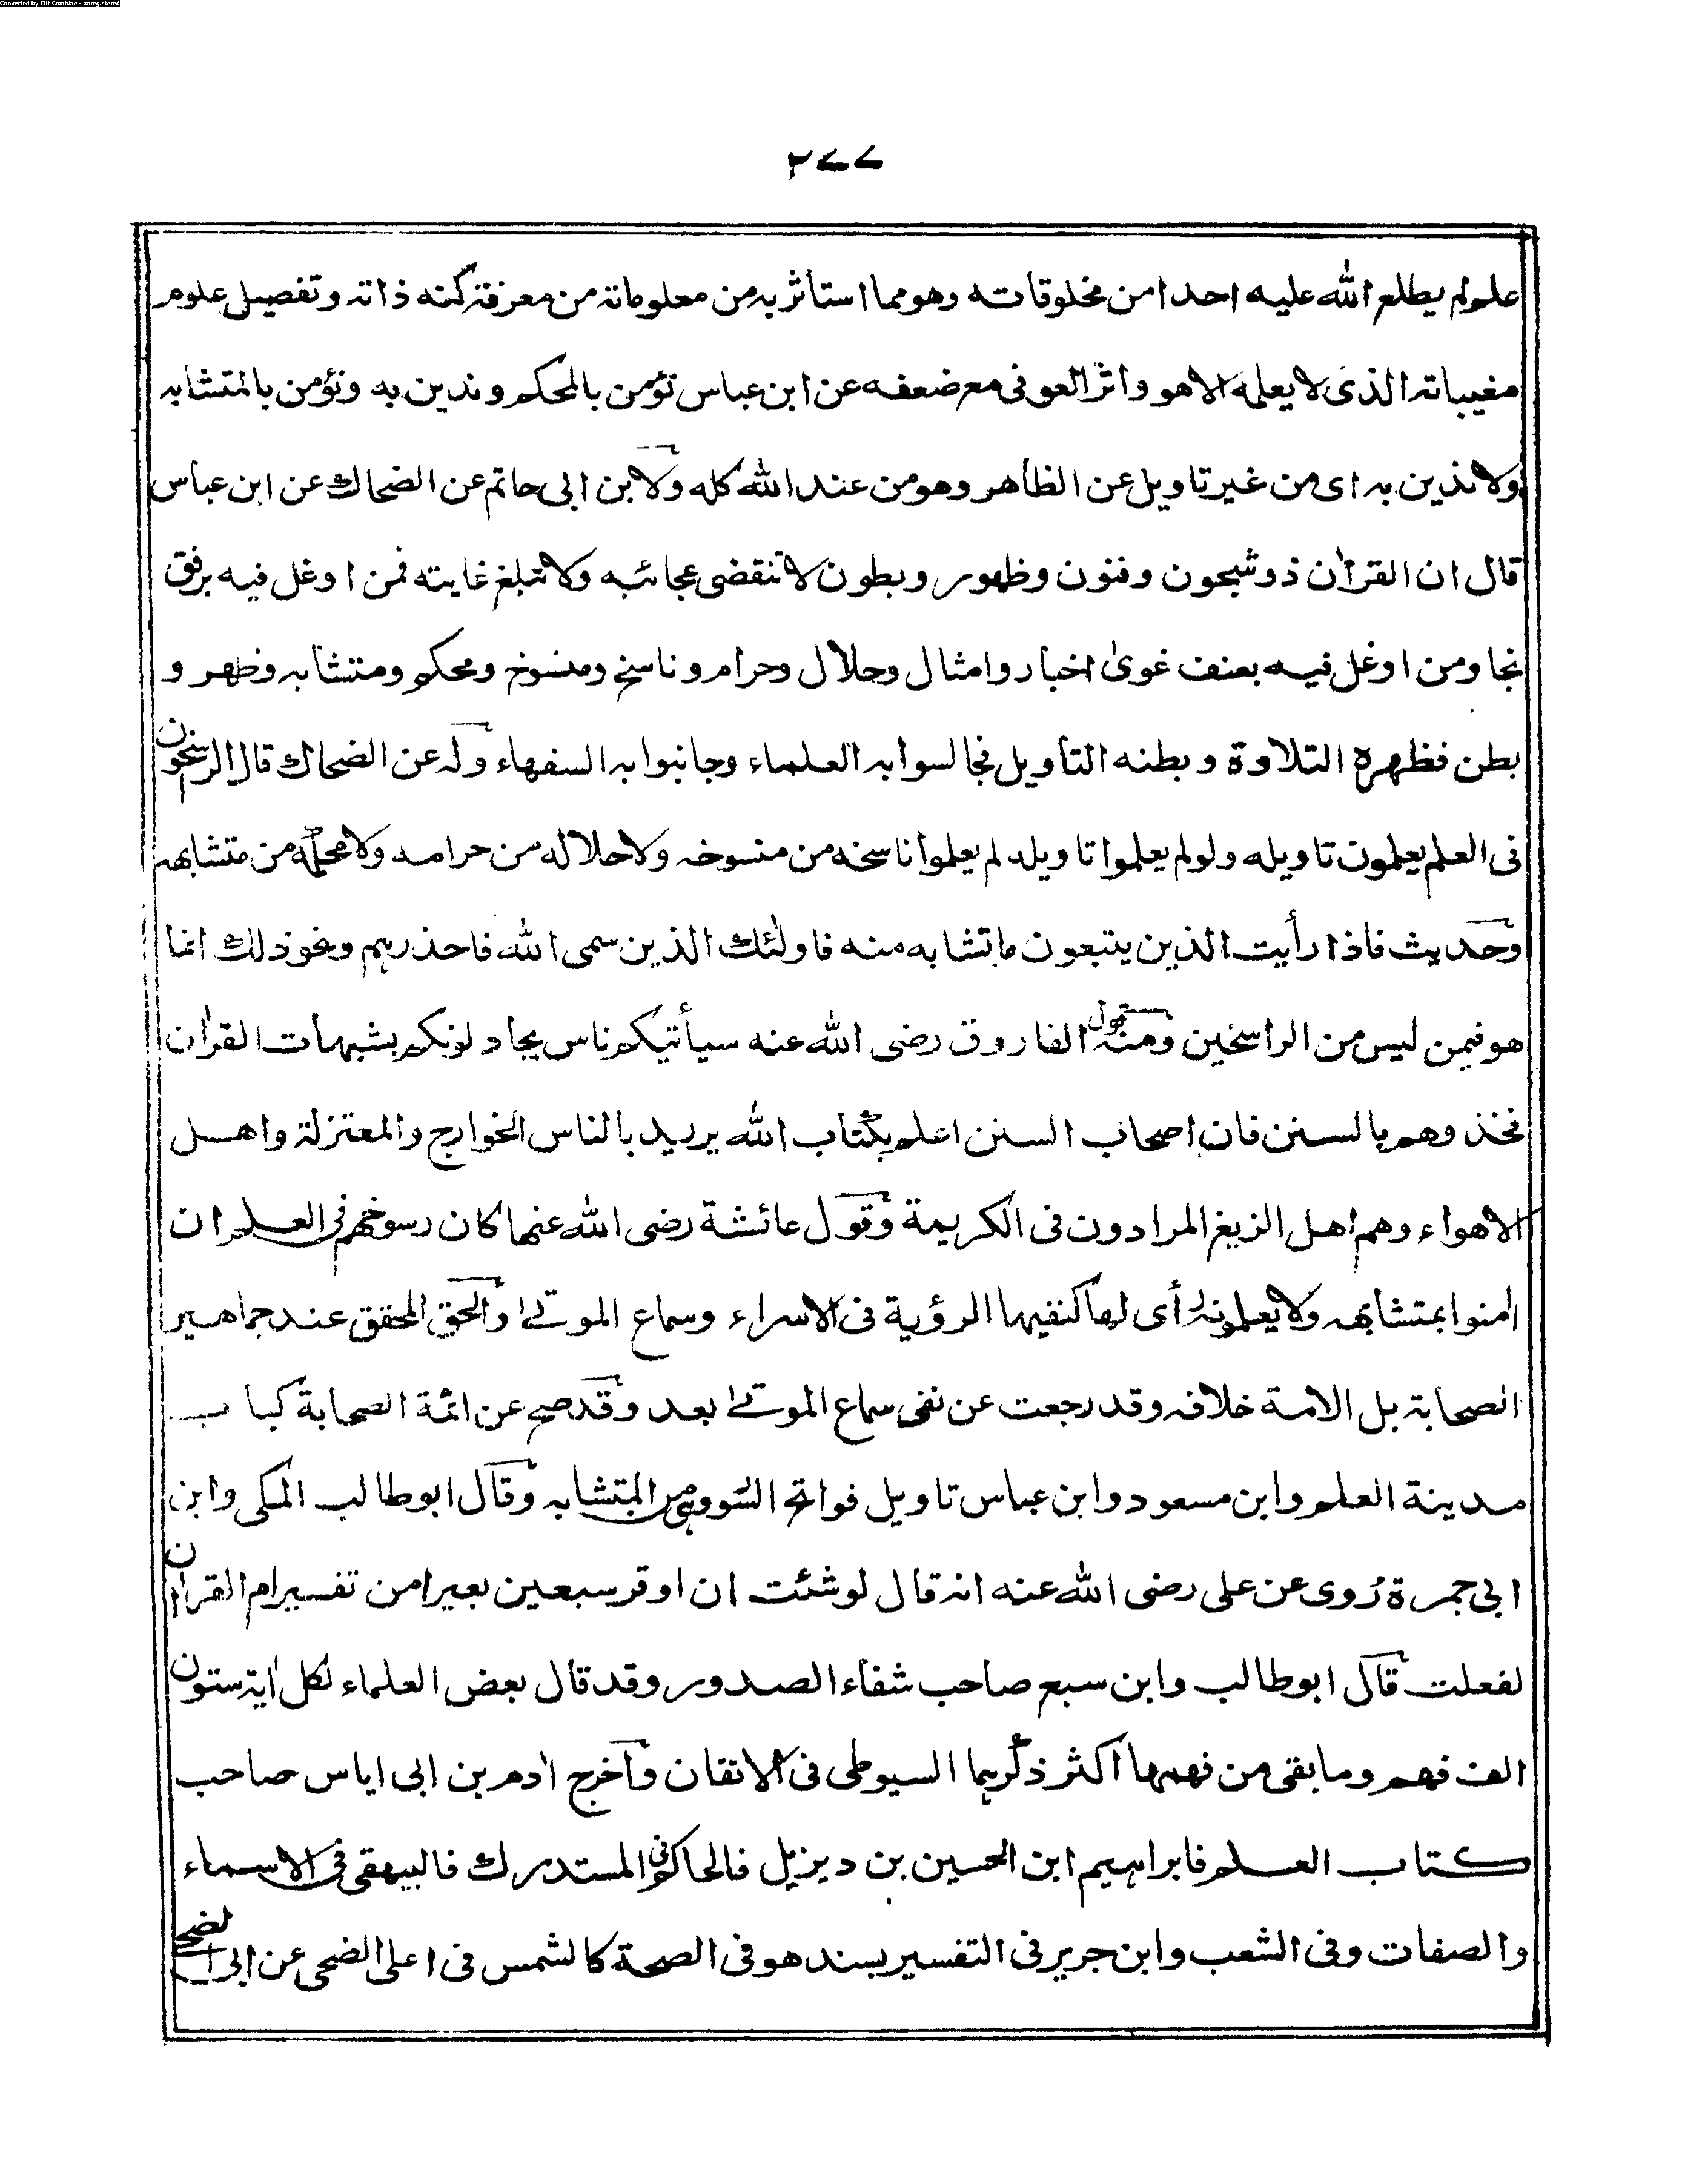 Converted by Tiff Combine - unregistered
٢٧٧
علم لم يطلع الله عليه احدا من مخلوقاته وهو مما استأثر به من معلوماته من معرفة كنه ذاته وتفصيل علوم
مغيباته الذى لا يعلمه الا هو واثر العوفى مع ضعفه عن ابن عباس نؤمن بالمحكم وندين به ونؤمن بالمتشابه
ولا ندين به اى من غير تاويل عن الظاهر وهو من عند الله كله ولابن ابى حاتم عن الضحاك عن ابن عباس
قال ان القرآن ذو شجون وفنون وظهور وبطون لا تنقضى عجائبه ولا تبلغ غايته فمن اوغل فيه برفق
نجا ومن اوغل فيه بعنف غوى اخبار وامثال وحلال وحرام وناسخ ومنسوخ ومحكم ومتشابه وظهر و
بطن فظهره التلاوة وبطنه التأويل فجالسوا به العلماء وجانبوا به السفهاء وله عن الضحاك قال الرسخون
فى العلم يعلمون تاويله ولو لم يعلموا تاويله لم يعلموا ناسخه من منسوخه ولا حلاله من حرامه ولا محكمه من متشابهه
وحديث فاذا رأيت الذين يتبعون ما تشابه منه فاولئك الذين سمى الله فاحذرهم ونحو ذلك انما
هو فيمن ليس من الراسخين ومنه قول الفاروق رضى الله عنه سيأتيكم ناس يجادلونكم بشبهات القرآن
فخذوهم بالسنن فان اصحاب السنن اعلم بكتاب الله يريد بالناس الخوارج والمعتزلة واهل
الاهواء وهم اهل الزيغ المرادون فى الكريمة وقول عائشة رضى الله عنها كان رسوخهم فى العلم ان
اٰمنوا بمتشابهه ولا يعلمونه رأى لها كنفيها الرؤية فى الاسراء وسماع الموتى والحق المحقق عند جماهير
الصحابة بل الامة خلافه وقد رجعت عن نفى سماع الموتى بعد وقد صح عن ائمة الصحابة كباب
مدينة العلم وابن مسعود وابن عباس تاويل فواتح السور وهى من المتشابه وقال ابو طالب المكى وابن
ابى جمرة رُوى عن على رضى الله عنه انه قال لو شئت ان اوقر سبعين بعيرا من تفسير ام القرآن
لفعلت قال ابو طالب وابن سبع صاحب شفاء الصدور وقد قال بعض العلماء لكل اٰية ستون
الف فهم وما بقى من فهمها اكثر ذكرهما السيوطى فى الاتقان واخرج اٰدم بن ابى اياس صاحب
كتاب العلم فابراهيم ابن الحسين بن ديزيل فالحاكم فى المستدرك فالبيهقى فى الاسماء
والصفات وفى الشعب وابن جرير فى التفسير بسند هو فى الصحة كالشمس فى اعلى الضحى عن ابى الضحى